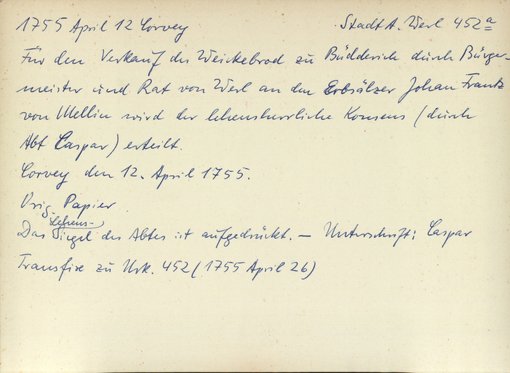 1755 April 12 Corvey Stadt A. Werl 452a
Für den Verkauf des Weickebrod zu Büdderich durch Bürger-
meister und Rat von Werl an den Erbsälzer Johan Frantz
von Mellin wird der lehensherrliche Konsens (durch
Abt Caspar) erteilt.
Corvey den 12. April 1755.
Orig. Papier
Das Lehens-Siegel des Abtes ist aufgedrückt. — Unterschrift: Caspar
Transfix zu Urk. 452 (1755 April 26)